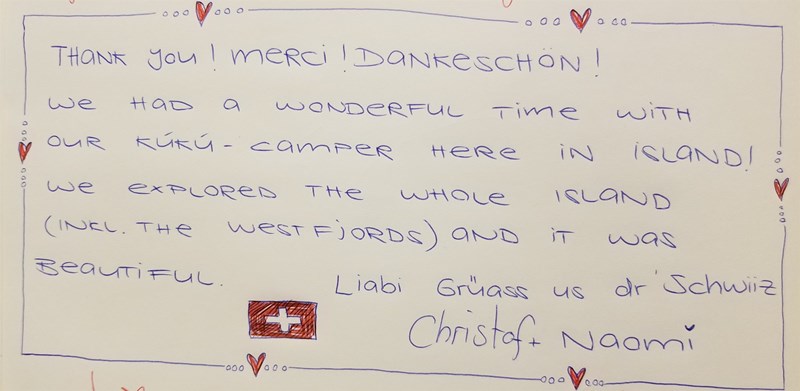 THANK YOU! MERCI! DANKESCHÖN!
WE HAD A WONDERFUL TIME WITH
OUR KÚKÚ-CAMPER HERE IN ISLAND!
WE EXPLORED THE WHOLE ISLAND
(INKL. THE WESTFJORDS) AND IT WAS
BEAUTIFUL.
Liabi Grüass us dr Schwiiz
Christof + Naomi